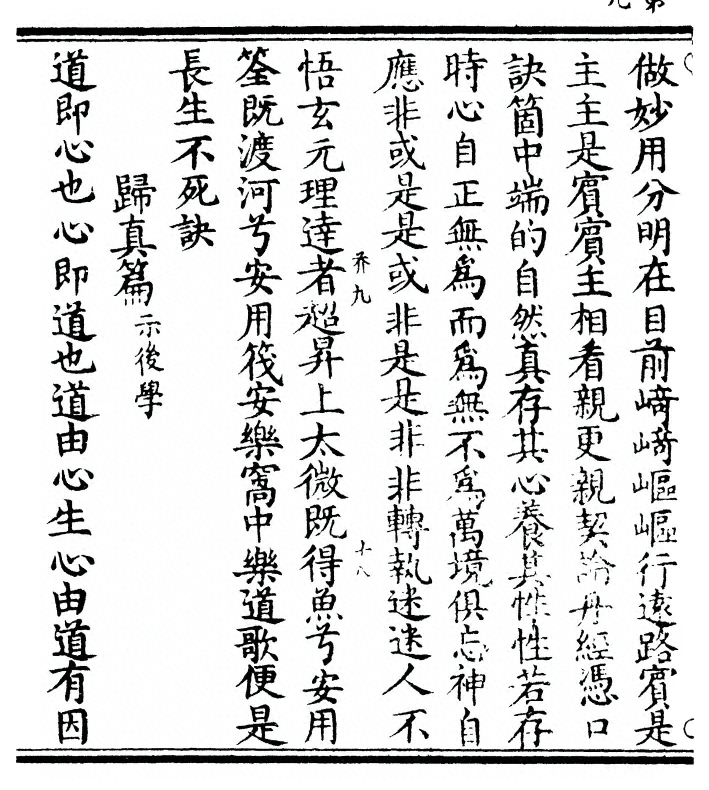 做妙用分明在目前﨑﨑嶇嶇行遠路賓是
主主是賓賓主相看親更親契論丹經憑口
訣箇中端的自然真存其心養其性性若存
時心自正無爲而爲無不爲萬境俱忘神自
應非或是是或非是是非非轉執迷迷人不
养九
十八
悟玄元理達者超昇上太微既得魚兮安用
筌既渡河兮安用筏安樂窩中樂道歌便是
長生不死訣
歸真篇示後學
道即心也心即道也道由心生心由道有因